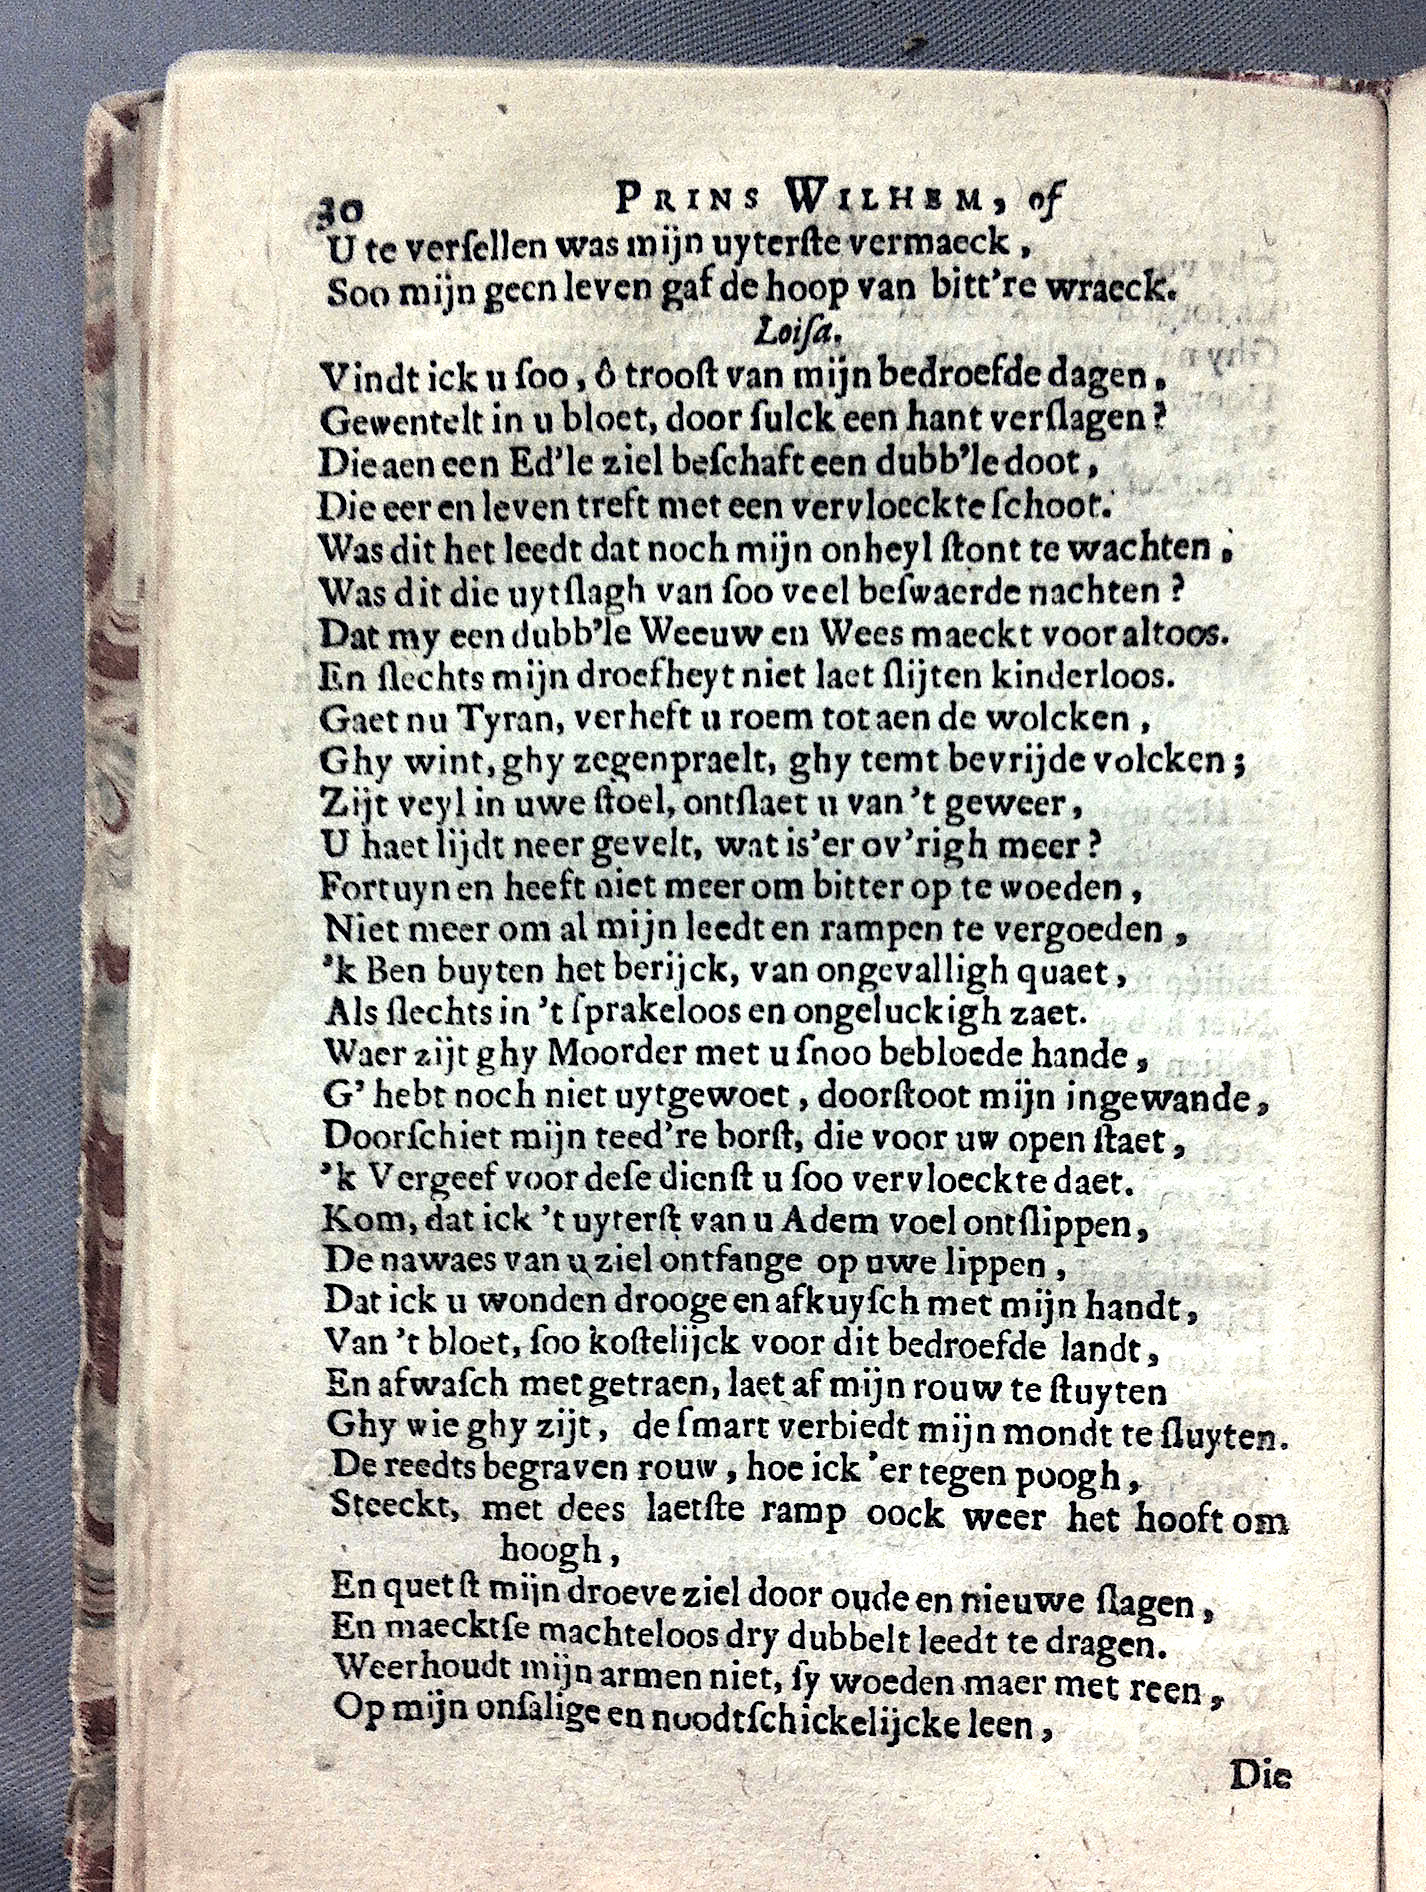 30 PRINS WILHEM, of
U te verſellen was mijn uyterſte vermaeck,
Soo mijn geen leven gaf de hoop van bitt’re wraeck.
Loiſa.
Vindt ick u ſoo, ô trooſt van mijn bedroefde dagen,
Gewentelt in u bloet, door ſulck een hant verſlagen?
Die aen een Ed’le ziel beſchaft een dubb’le doot,
Die eer en leven treft met een vervloeckte ſchoot.
Was dit het leedt dat noch mijn onheyl ſtont te wachten,
Was dit die uytſlagh van ſoo veel beſwaerde nachten?
Dat my een dubb’le Weeuw en Wees maeckt voor altoos.
En ſlechts mijn droefheyt niet laet ſlijten kinderloos.
Gaet nu Tyran, verheft u roem tot aen de wolcken,
Ghy wint, ghy zegenpraelt, ghy temt bevrijde volcken;
Zijt veyl in uwe ſtoel, ontſlaet u van ’t geweer,
U haet lijdt neer gevelt, wat is’er ov’righ meer?
Fortuyn en heeft niet meer om bitter op te woeden,
Niet meer om al mijn leedt en rampen te vergoeden,
’k Ben buyten het berijck, van ongevalligh quaet,
Als ſlechts in ’t ſprakeloos en ongeluckigh zaet.
Waer zijt ghy Moorder met u ſnoo bebloede hande,
G’ hebt noch niet uytgewoet, doorſtoot mijn ingewande,
Doorſchiet mijn teed’re borſt, die voor uw open ſtaet,
’k Vergeef voor deſe dienſt u ſoo vervloeckte daet.
Kom, dat ick ’t uyterſt van u Adem voel ontſlippen,
De nawaes van u ziel ontfange op uwe lippen,
Dat ick u wonden drooge en afkuyſch met mijn handt,
Van ’t bloet, ſoo koſtelijck voor dit bedroefde landt,
En afwaſch met getraen, laet af mijn rouw te ſtuyten
Ghy wie ghy zijt, de ſmart verbiedt mijn mondt te ſluyten.
De reedts begraven rouw, hoe ick ’er tegen poogh,
Steeckt, met dees laetſte ramp oock weer het hooft om
hoogh,
En quetſt mijn droeve ziel door oude en nieuwe ſlagen,
En maecktſe machteloos dry dubbelt leedt te dragen.
Weerhoudt mijn armen niet, ſy woeden maer met reen,
Op mijn onſalige en noodtſchickelijcke leen,
Die